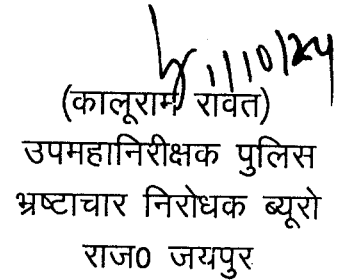 1/10/24
(कालूराम रावत)
उपमहानिरीक्षक पुलिस
भ्रष्टाचार निरोधक ब्यूरो
राज0 जयपुर